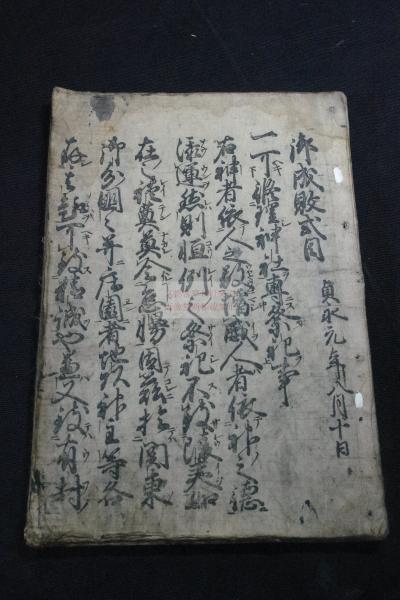 御成敗式目
貞永元年八月十日
一可修理神社專祭祀事
右神者依人之敬増威人者依神之德
添運然則恒例之祭祀不致陵夷如
在之禮奠莫令怠慢因茲於関東
御分國々并庄園者地頭神主等各
存其趣可致精誠也兼又至有封